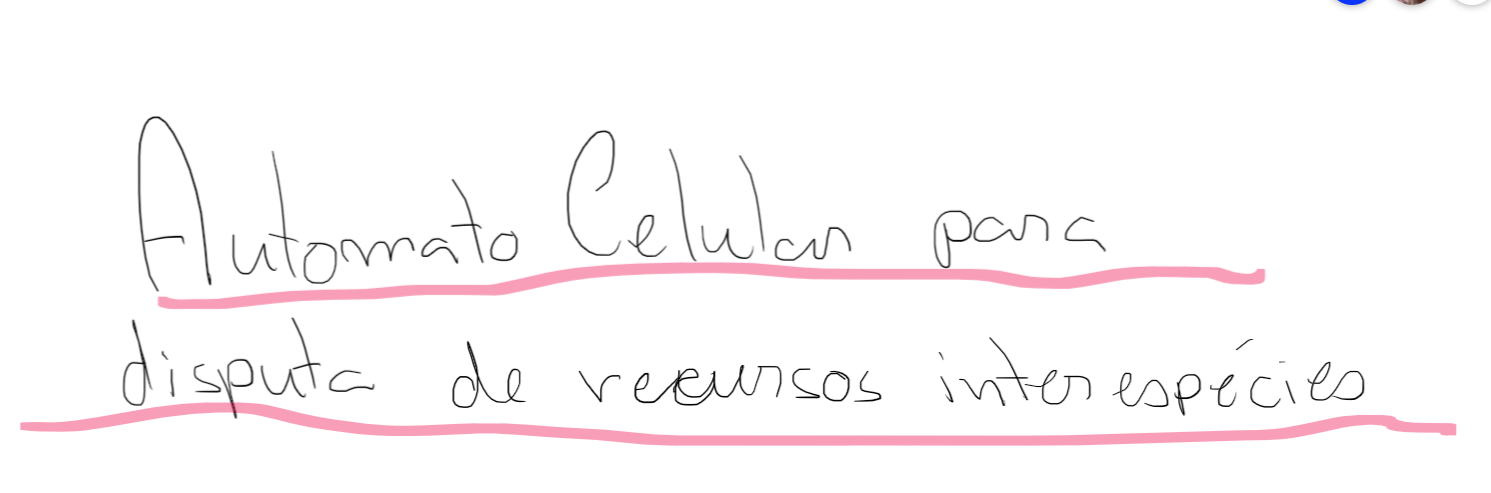 Automato Celular para
disputa de recursos interespécies